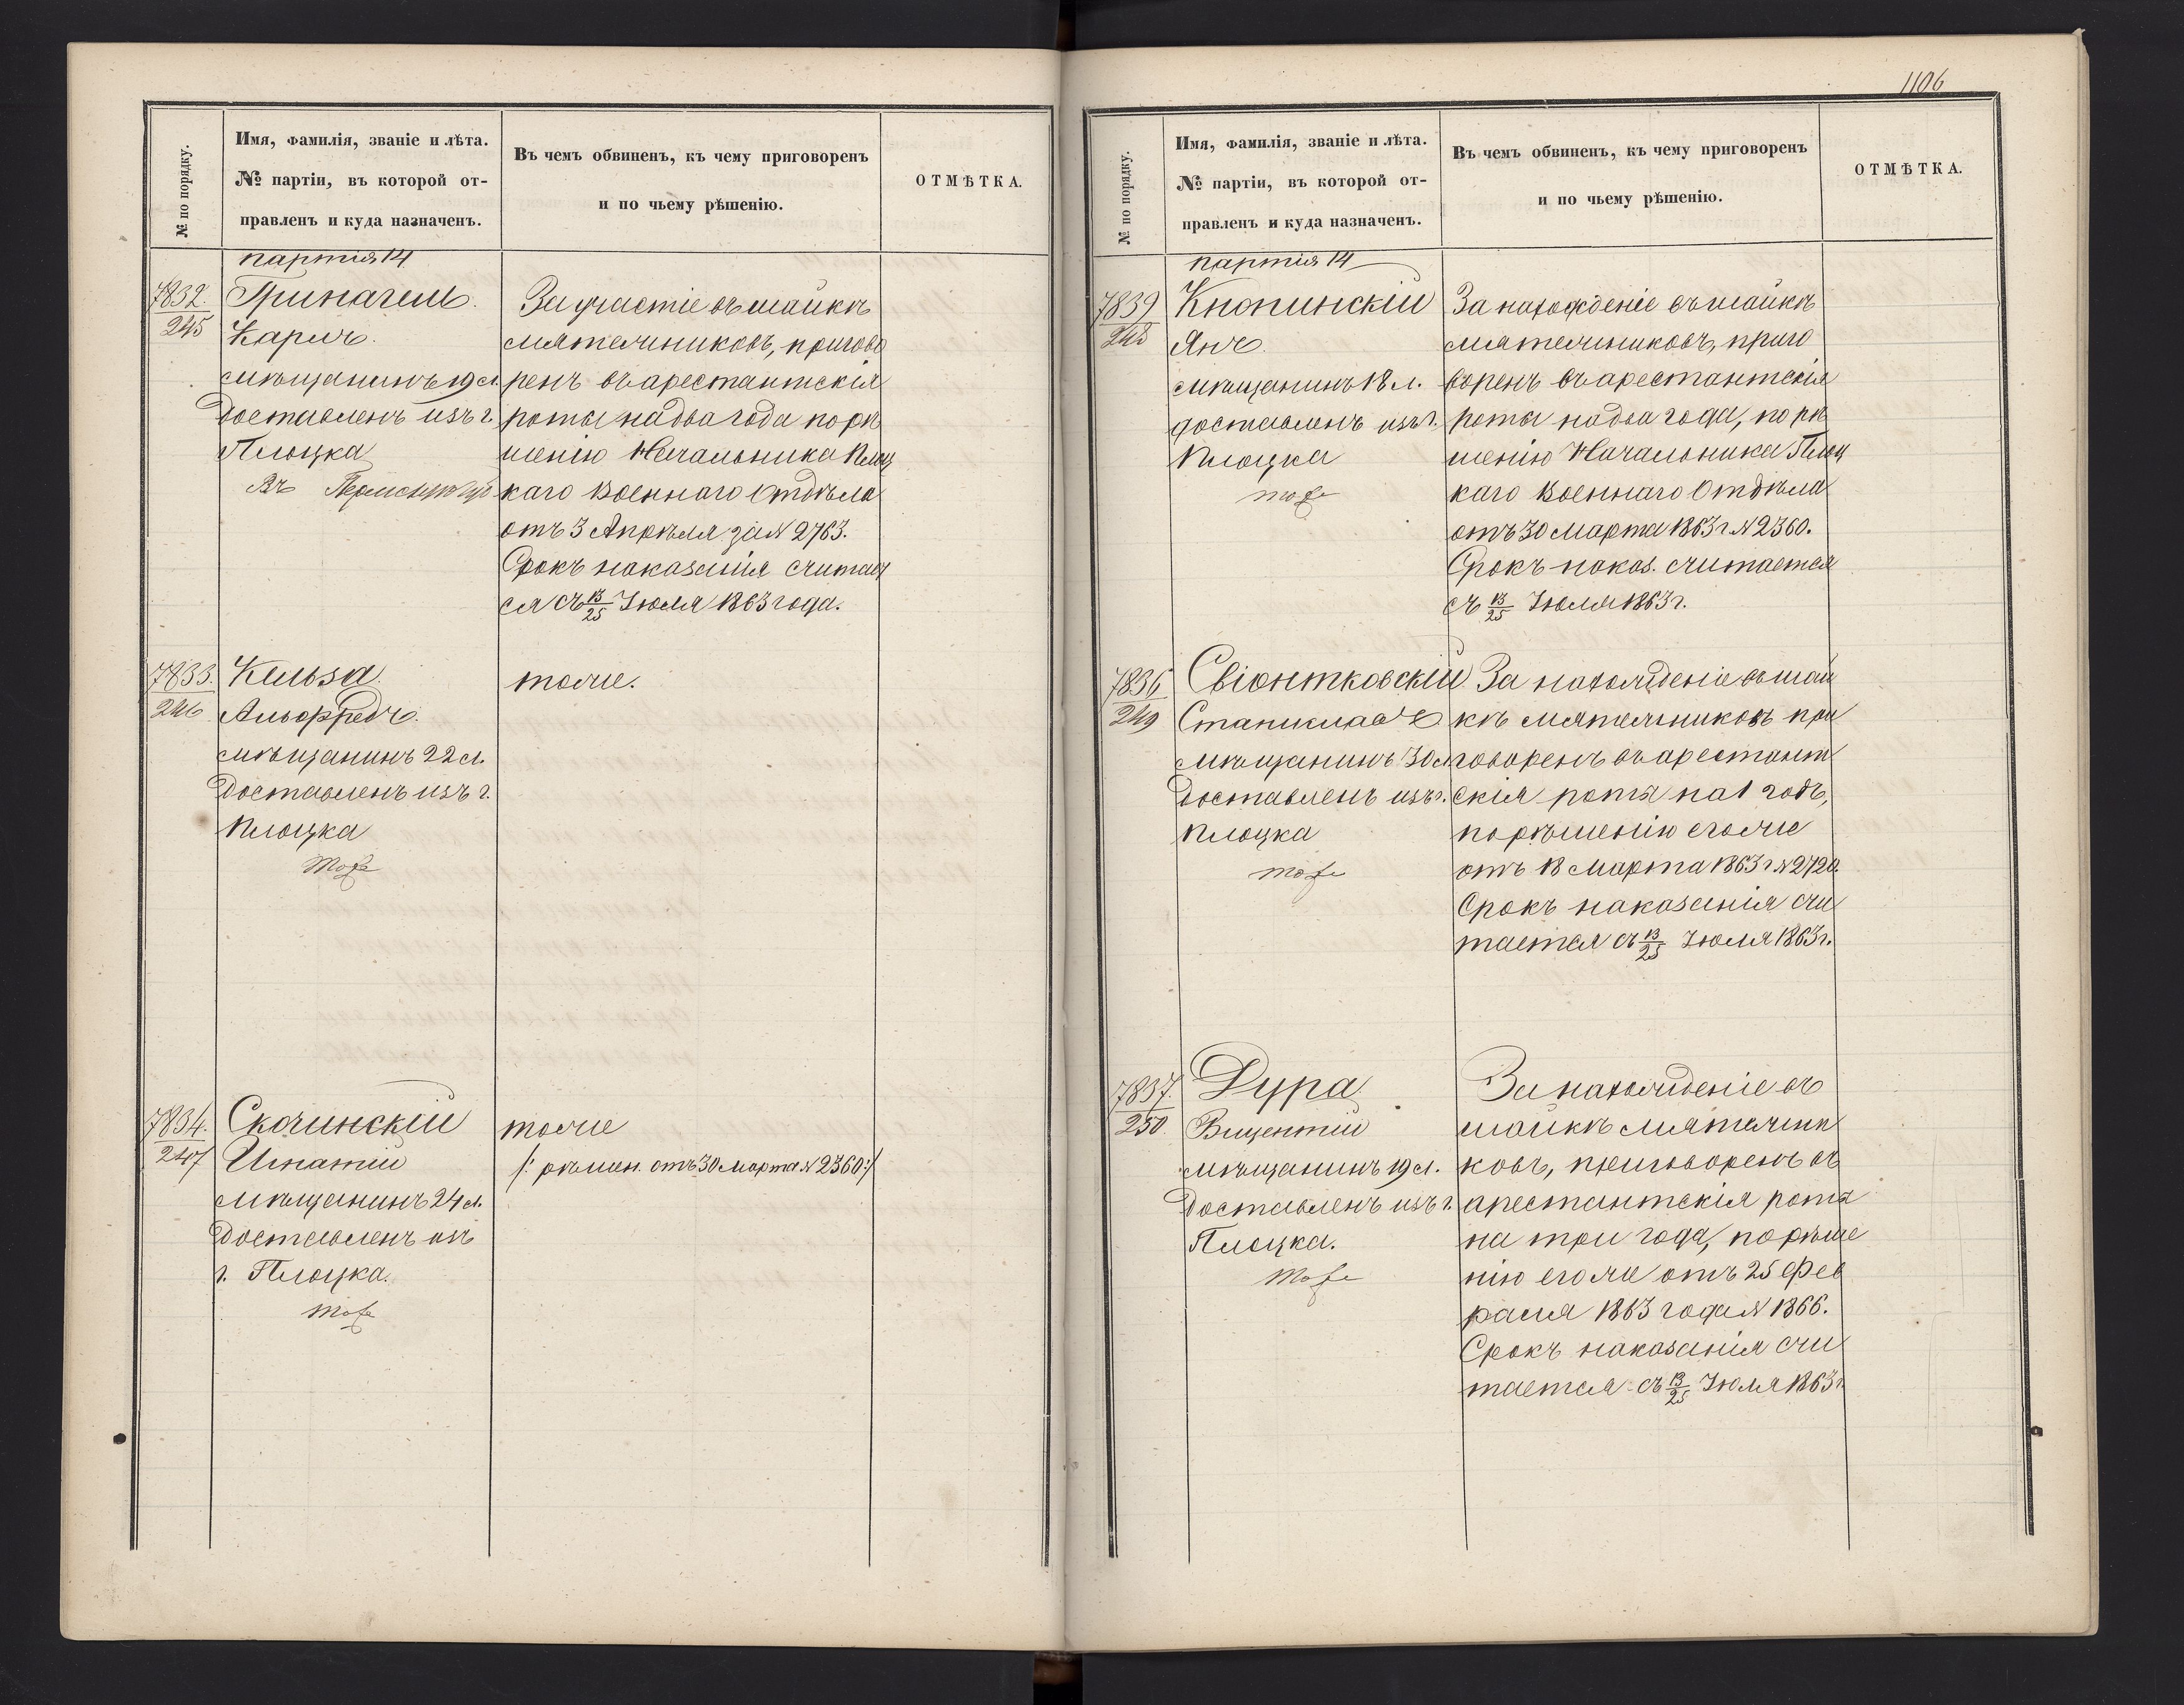 1106
№ по порядку.
Имя, фамилія, званіе и лѣта.
№ партіи, въ которой от-
правленъ и куда назначенъ.
Въ чемъ обвиненъ, къ чему приговоренъ
и по чьему рѣшенію.
ОТМѢТКА.
партія 14
7832.
245
Гриначель
Карлъ.
мѣщанинъ 19 л.
Доставленъ изъ г.
Плоцка
Въ
За участіе въ шайкѣ
мятежниковъ, пригово
ренъ въ арестантскія
роты на два года по рѣ
шенію Начальника Плоц
каго Военнаго Отдѣла
отъ 3 Апрѣля за N 2763.
Срокъ наказанія считает
ся съ 13/25 Іюля 1863 года.
7833.
246
Кельза.
Альфредъ.
мѣщанинъ 22 л.
Доставленъ изъ г.
Плоцка
тоже
тоже.
7834.
247
Скочинскій
Игнатій
мѣщанинъ 24 л.
Доставленъ изъ
г. Плоцка.
тоже
тоже
/: рѣшен. отъ 30 Марта N 2360 :/
№ по порядку.
Имя, фамилія, званіе и лѣта.
№ партіи, въ которой от-
правленъ и куда назначенъ.
Въ чемъ обвиненъ, къ чему приговоренъ
и по чьему рѣшенію.
ОТМѢТКА.
партія 14
7839
248
Кнопинскій
Янъ.
мѣщанинъ 18 л.
доставленъ изъ г.
Плоцка
тоже
За нахожденіе въ шайкѣ
мятежниковъ, приго
воренъ въ арестантскія
роты на два года, по рѣ
шенію Начальника Плоц
каго Военнаго Отдѣла
отъ 30 Марта 1863 г N 2360.
Срокъ наказ. считается
съ 13/25 Іюля 1863 г.
7836
249
Свіонтковскій
Станиславъ
мѣщанинъ 30 л
Доставленъ изъ г.
Плоцка
тоже
За нахожденіе въ шай
кѣ мятежниковъ при
говоренъ въ арестант
скія роты на 1 годъ,
по рѣшенію егоже
отъ 18 Марта 1863 г N 2720.
Срокъ наказанія счи
тается съ 13/25 Іюля 1863 г.
7837.
250
Дура
Вицентій
мѣщанинъ 19 л.
Доставленъ изъ г.
Плоцка.
тоже
За нахожденіе въ
шайкѣ мятежни
ковъ, приговоренъ въ
арестантскія роты
на три года, по рѣше
нію егоже отъ 25 Фев
раля 1863 года N 1866.
Срокъ наказанія счи
тается съ 13/25 Іюля 1863 г.